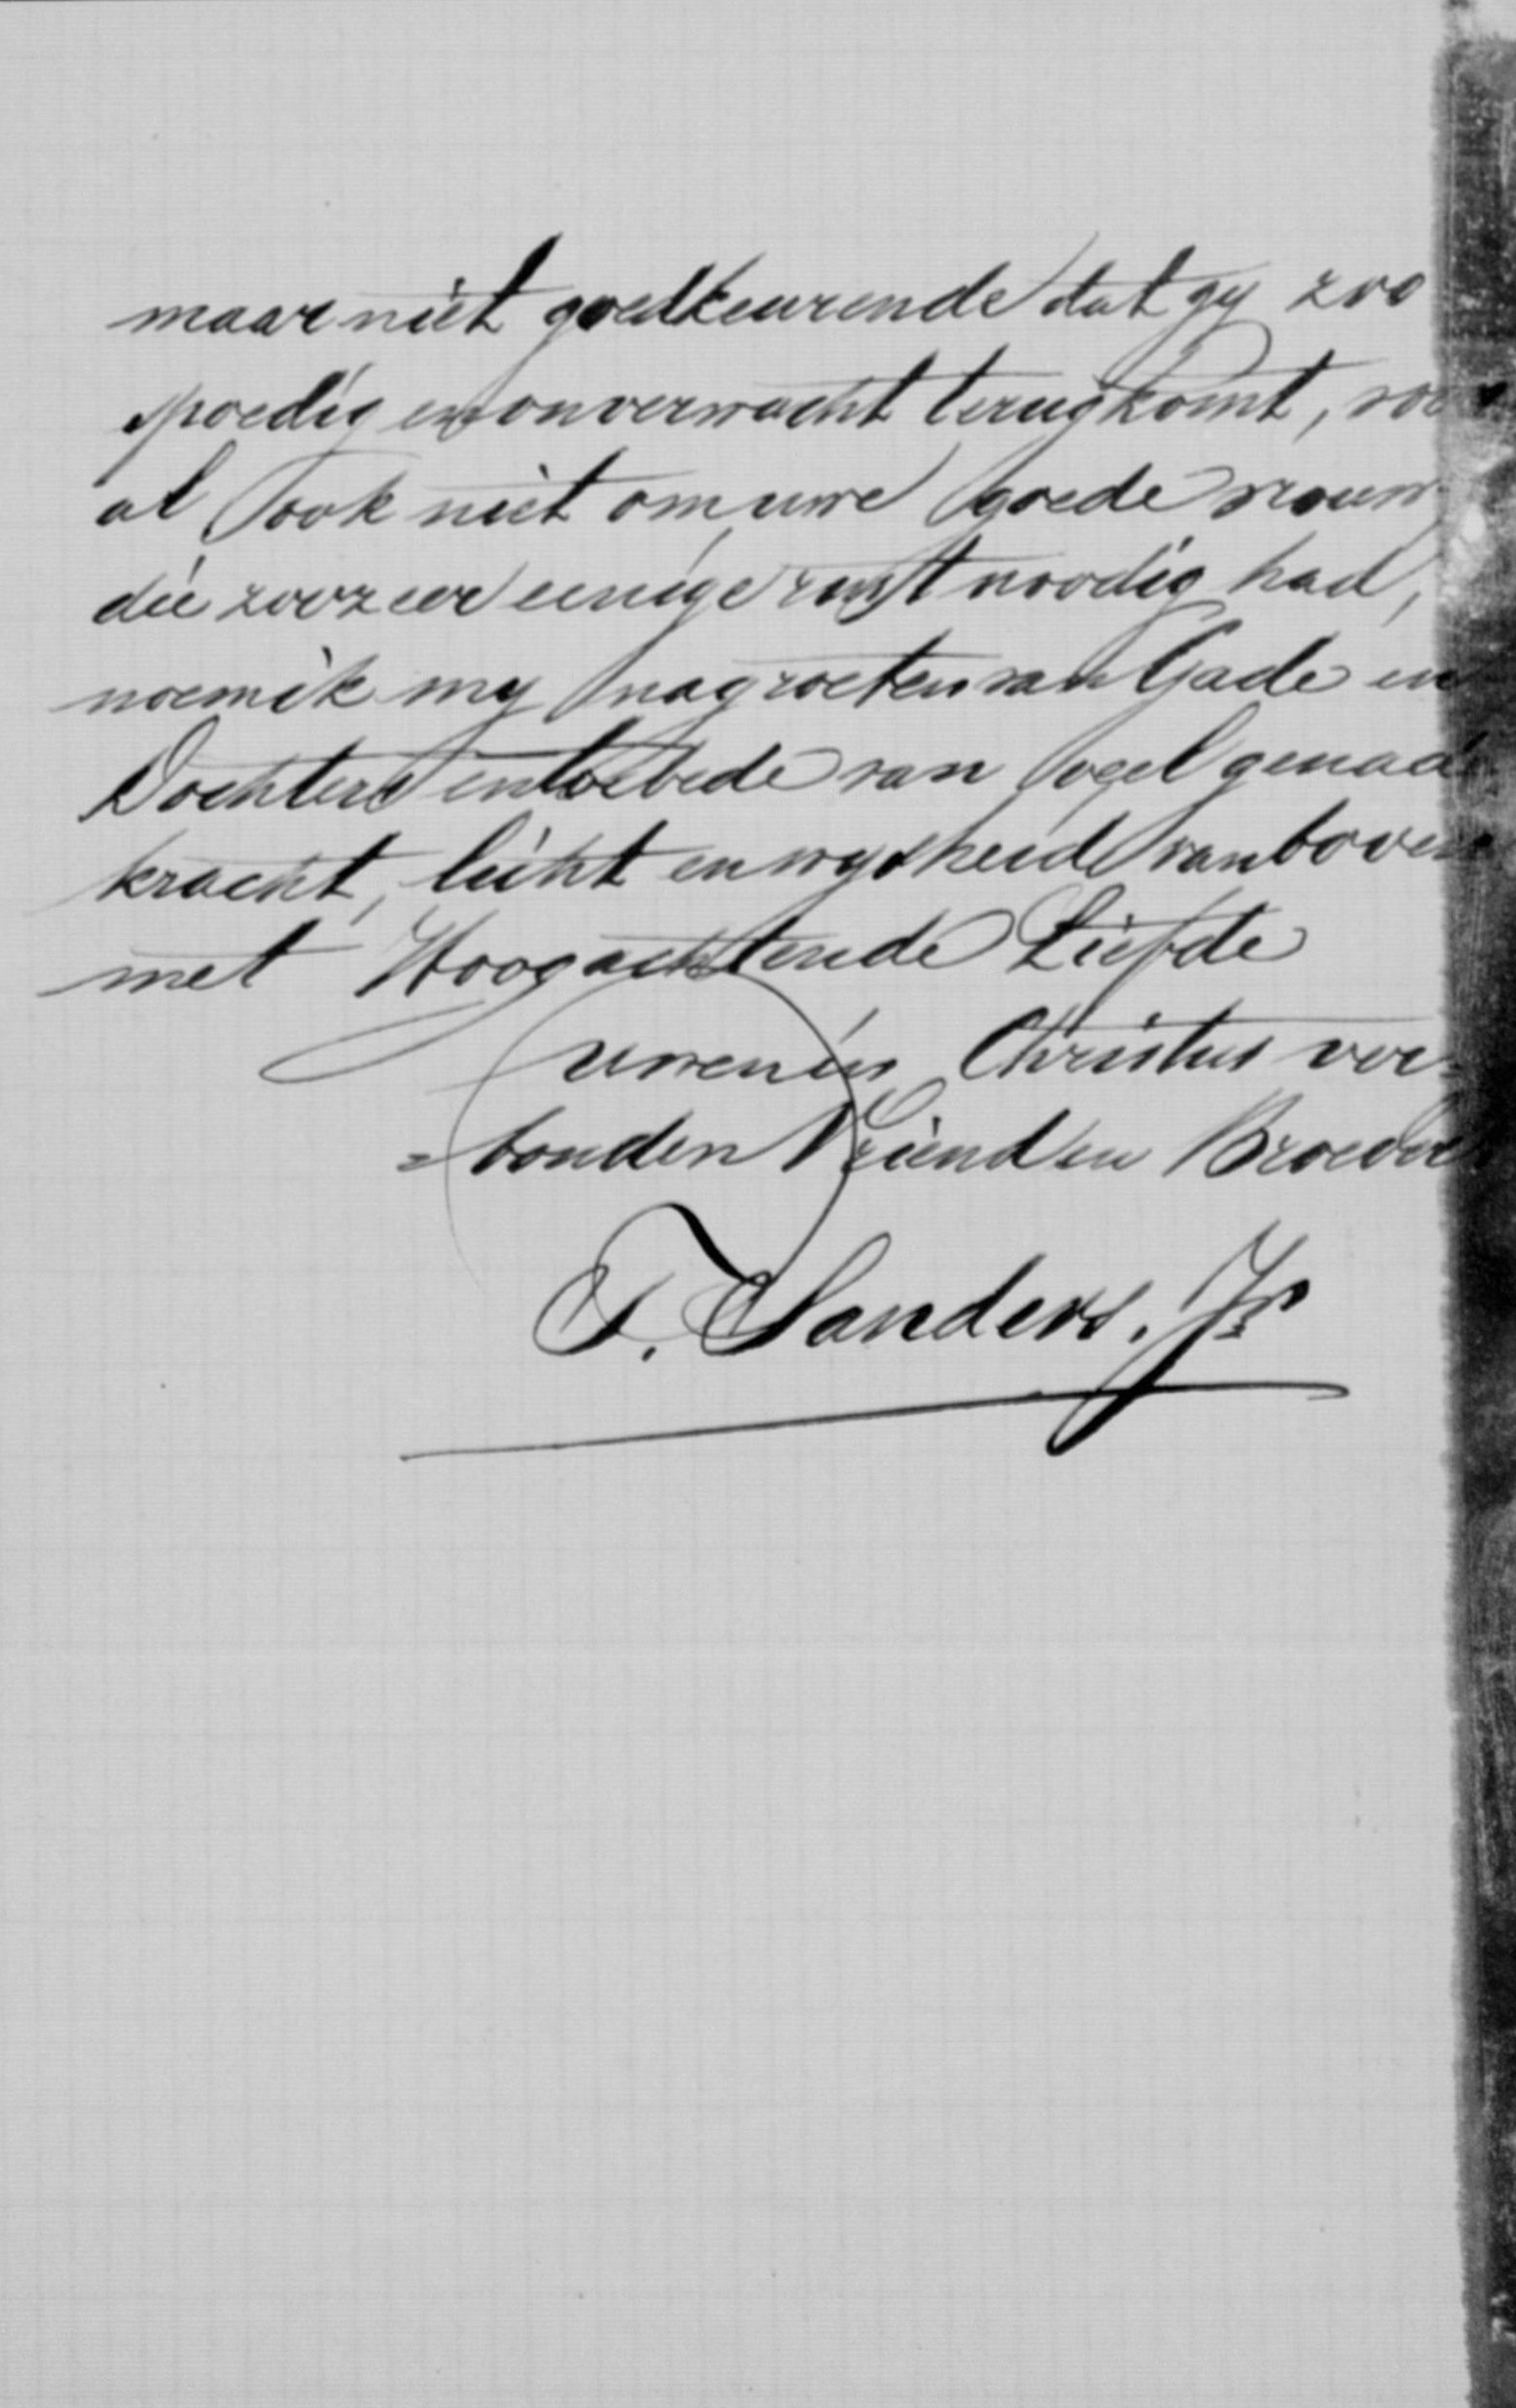 maar niet goedkeurende dat gy zoo
spoedig en onverwacht terugkomt, voor
al ook niet om uwe goede vrouw
die zoozeer eenige rust noodig had,
noem ik my na groeten van Gade en
Dochters en toebede van veel genade
kracht, licht en wysheid van boven
met Hoogachtende Liefde
uwen in Christus ver=
=bonden Vriend en Broeder
T. Sanders. Jr